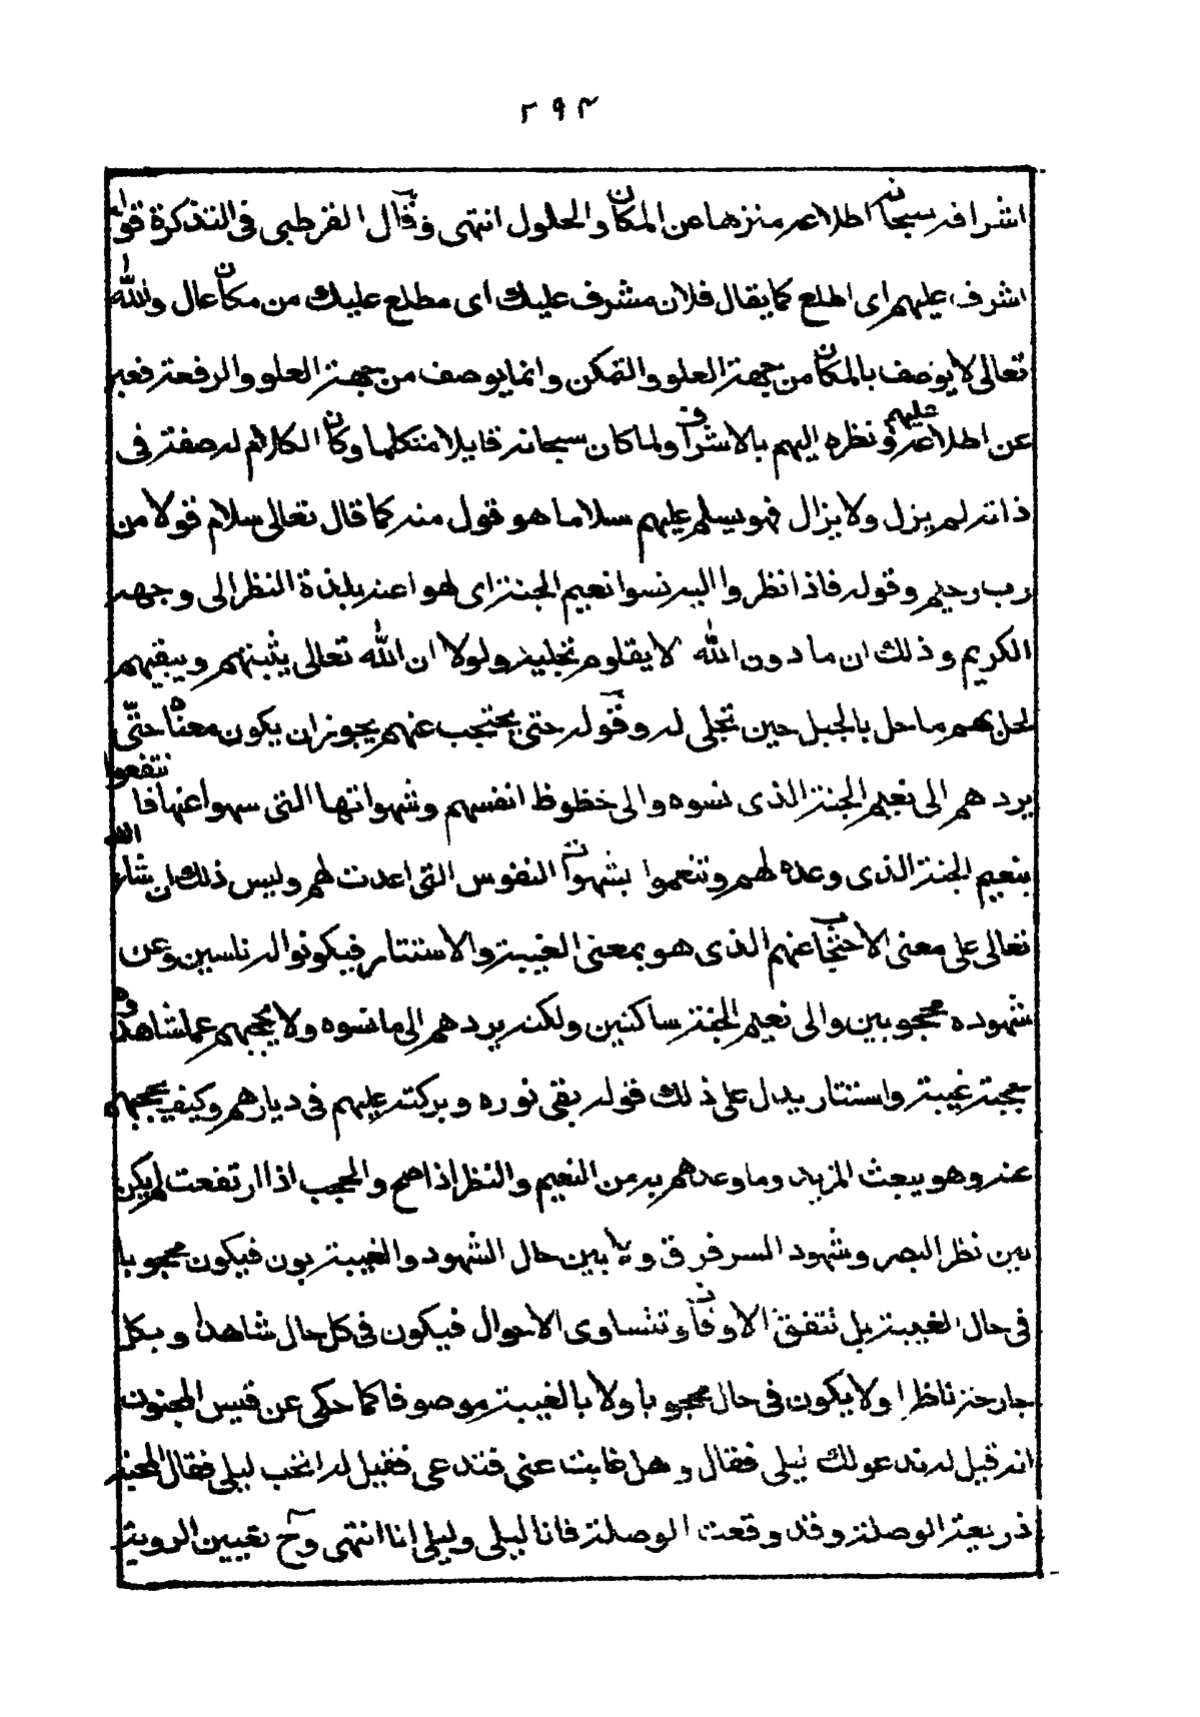 ٢٩٣
اشرافه سبحانه اطلاعه منزها عن المكان والحلول انتهى وقال القرطبى فى التذكرة قوله
اشرف عليهم اى اطلع كما يقال فلان مشرف عليك اى مطلع عليك من مكان عال والله
تعالى لا يوصف بالمكان من جهة العلو والتمكن وانما يوصف من جهة العلو والرفعة فعبر
عن اطلاعه عليهم ونظره اليهم بالاشراف ولما كان سبحانه قايلا متكلما وكان الكلام له صفة فى
ذاته لم يزل ولا يزال فهو يسلم عليهم سلاما هو قول منه كما قال تعالى سلام قولا من
رب رحيم وقوله فاذا نظروا اليه نسوا نعيم الجنة اى لهوا عنه بلذة النظر الى وجهه
الكريم وذلك ان ما دون الله لا يقاوم تجليه ولولا ان الله تعالى يثبتهم ويبقيهم
لحل بهم ما حل بالجبل حين تجلى له وقوله حتى يحتجب عنهم يجوز ان يكون معناه حتى
يردهم الى نعيم الجنة الذى نسوه والى حظوظ انفسهم وشهواتها التى سهوا عنها فانتفعوا
بنعيم الجنة الذى وعده لهم وتنعموا بشهوات النفوس التى اعدت لهم وليس ذلك ان شاء الله
تعالى على معنى الاحتجاب عنهم الذى هو بمعنى الغيبة والاستتار فيكونوا له ناسين وعن
شهوده محجوبين والى نعيم الجنة ساكنين ولكنه يردهم الى ما نسوه ولا يحجبهم عما شاهدوه
حجبة غيبة واستتار يدل على ذلك قوله بقى نوره وبركته عليهم فى ديارهم وكيف يحجبهم
عنه وهو يبعث المزيد وما وعدهم به من النعيم والنظر اذا صح والحجب اذا ارتفعت لم يكن
بين نظر البصر وشهود السر فرق ولا بين حال الشهود والغيبة بون فيكون محجوبا
فى حال الغيبة بل تتفق الاوقات وتتساوى الاحوال فيكون فى كل حال شاهدا وبكل
جارحة ناظرا ولا يكون فى حال محجوبا ولا بالغيبة موصوفا كما حكى عن قيس المجنون
انه قيل له ندعو لك ليلى فقال وهل غابت عنى فتدعى فقيل له اتحب ليلى فقال المحبة
ذريعة الوصلة وقد وقعت الوصلة فانا ليلى وليلى انا انتهى وح تعيين الروية